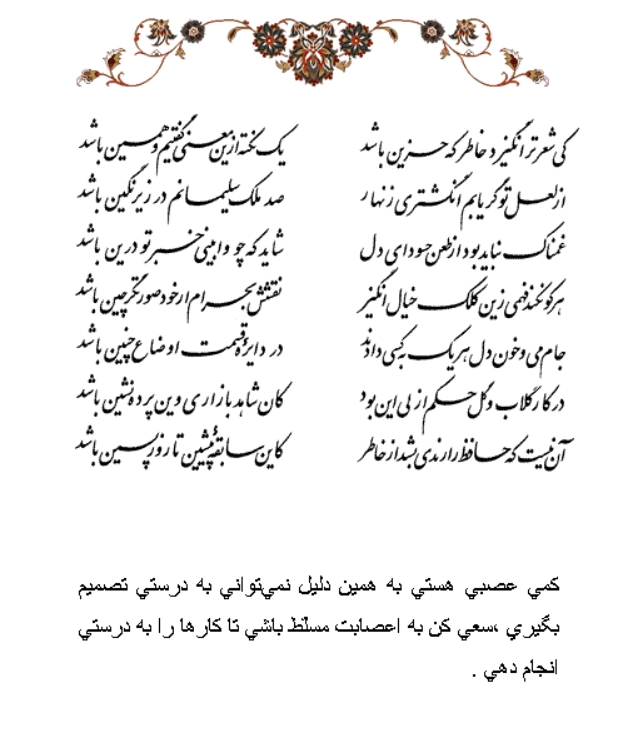 کی شعر تر انگیزد خاطر که حزین باشد یک نکته ازین معنی گفتیم و همین باشد
از لعل تو گر یابم انگشتری زنهار صد ملک سلیمانم در زیر نگین باشد
غمناک نباید بود از طعن حسود ای دل شاید که چو وابینی خیر تو درین باشد
هر کو نکند فهمی زین کلک خیال انگیز نقشش بحرام ار خود صورتگر چین باشد
جام می و خون دل هر یک به کسی دادند در دایره قسمت اوضاع چنین باشد
در کار گلاب و گل حکم ازلی این بود کان شاهد بازاری وین پرده نشین باشد
آن نیست که حافظ را رندی بشد از خاطر کاین سابقهٔ پیشین تا روز پسین باشد
كمي عصبي هستي به همين دليل نمي‌تواني به درستي تصميم
بگيري ،سعي كن به اعصابت مسلّط باشي تا كارها را به درستي
انجام دهي .